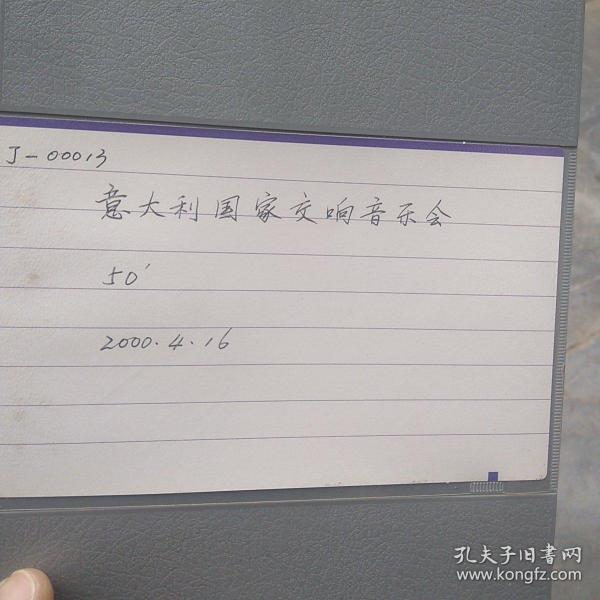 J-00013
意大利国家交响音乐会
50′
2000.4.16
孔夫子旧书网
www.kongfz.com